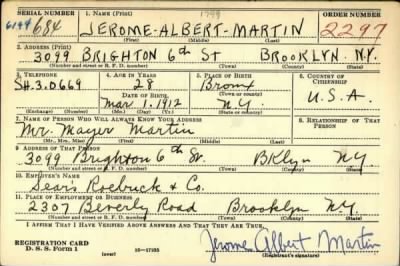 SERIAL NUMBER 1. NAME (Print) 1799 ORDER NUMBER
6149 684 JEROME-ALBERT-MARTIN 2297
2. ADDRESS (Print)
3099 BRIGHTON 6th ST BROOKLYN. N.Y.
(Number and street or R. F. D. number) (Town) (County) (State)
3. TELEPHONE 4. AGE IN YEARS 5. PLACE OF BIRTH 6. COUNTRY OF CITIZENSHIP
SH.3.0669 28 Bronx
DATE OF BIRTH (Town or county)
Mar. 1. 1912 N.Y. U.S.A.
(Exchange) (Number) (Mo.) (Day) (Yr.) (State or country)
7. NAME OF PERSON WHO WILL ALWAYS KNOW YOUR ADDRESS 8. RELATIONSHIP OF THAT PERSON
Mr. Mayer Martin
(Mr., Mrs., Miss) (First) (Middle) (Last)
9. ADDRESS OF THAT PERSON
3099 Brighton 6th St. BKlyn NY
(Number and street or R. F. D. number) (Town) (County) (State)
10. EMPLOYER'S NAME
Sears Roebuck & Co.
11. PLACE OF EMPLOYMENT OR BUSINESS
2307 Beverly Road Brooklyn NY
(Number and street or R. F. D. number) (Town) (County) (State)
I AFFIRM THAT I HAVE VERIFIED ABOVE ANSWERS AND THAT THEY ARE TRUE.
REGISTRATION CARD Jerome Albert Martin
D. S. S. Form 1 (over) 16-17105 (Registrant's signature)